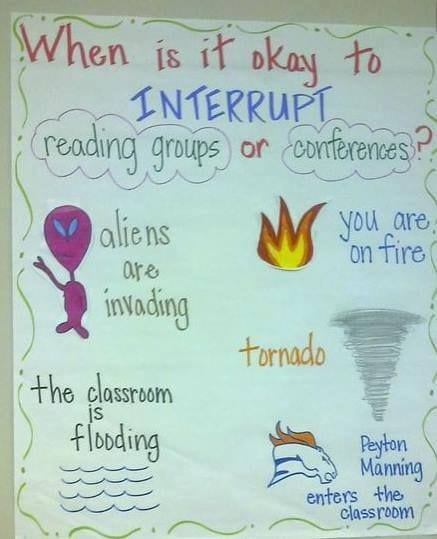 When is it okay to
INTERRUPT
reading groups or conferences?
aliens
are
invading
you are
on fire
tornado
the classroom
is
flooding
Peyton
Manning
enters the
classroom